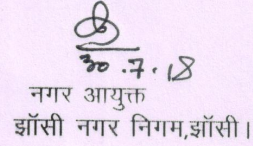 30.7.18
नगर आयुक्त
झॉसी नगर निगम,झॉसी।